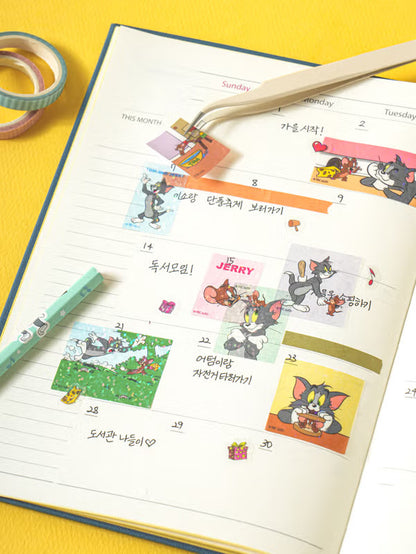 Sunday
Monday
Tuesday
THIS MONTH
2
가을 시작!
7
8
9
미소랑 단풍축제 보러가기
14
15
독서모임!
JERRY
쇼핑하기
21
22
23
어텀이랑
자전거타러가기
24
28
29
30
도서관 나들이♡